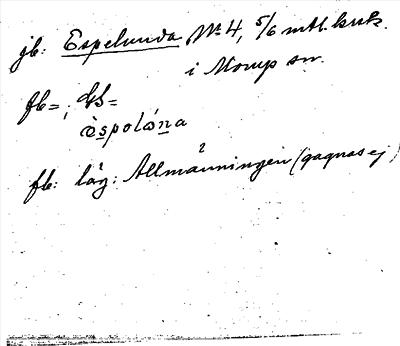 jb: Espelunda № 4, 5/6 mtl. kruk.
i Morup sn.
fb=; ds=
èspoló̱ṉa
fb: låg: Allmänningen (gagnas ej)